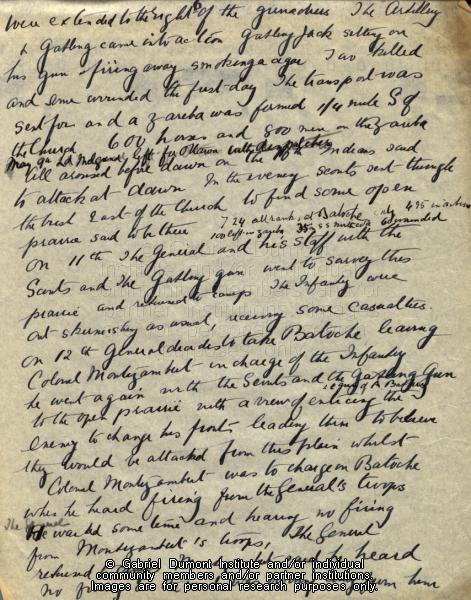 were extended to the right of the grenadiers The Artillery
& Gatling came into action Gatling Jack sitting on
his gun firing away smoking a cigar Two killed
and some wounded the first day The transport was
sent for and a zareba was formed 1/4 mile S of
the Church 600 horses and 800 men in the Zareba
May 9th Ld Melgund left for Ottawa with despatches
till aroused before dawn on the 10th Indians said
to attack at dawn In the evening scouts went through
the bush East of the Church to find some open
prairie said to be there
724 all ranks at Batoche only 495 in action
100 left in zareba
wounded
on 11th The General and his staff with the
Scouts and the Gatling gun went to survey this
prairie and returned to camp The Infantry were
out skirmishing as usual, receiving some casualties.
on 12th General decides to take Batoche leaving
Colonel Montizambert in charge of the Infantry
he went again with the Scouts and the Gatling Gun
1 gun of A Battery
to the open prairie with a view of enticing the
enemy to change his front, leading them to believe
they would be attacked from this plain whilst
Colonel Montizambert was to charge on Batoche
when he heard firing from the General's troops
The General
He waited some time and hearing no firing
from Montizambert's troops, The General
returned he heard
no
© Gabriel Dumont Institute and/or individual
community members and/or partner institutions.
Images are for personal research purposes, only.